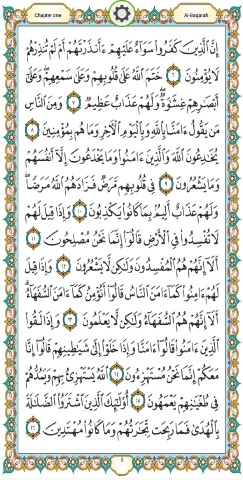 Chapter one
Al-Baqarah
إِنَّ الَّذِينَ كَفَرُوا سَوَاءٌ عَلَيْهِمْ ءَأَنذَرْتَهُمْ أَمْ لَمْ تُنذِرْهُمْ
لَا يُؤْمِنُونَ ٦ خَتَمَ اللَّهُ عَلَىٰ قُلُوبِهِمْ وَعَلَىٰ سَمْعِهِمْ وَعَلَىٰ
أَبْصَارِهِمْ غِشَاوَةٌ وَلَهُمْ عَذَابٌ عَظِيمٌ ٧ وَمِنَ النَّاسِ
مَن يَقُولُ ءَامَنَّا بِاللَّهِ وَبِالْيَوْمِ الْآخِرِ وَمَا هُم بِمُؤْمِنِينَ ٨
يُخَادِعُونَ اللَّهَ وَالَّذِينَ ءَامَنُوا وَمَا يَخْدَعُونَ إِلَّا أَنفُسَهُمْ
وَمَا يَشْعُرُونَ ٩ فِي قُلُوبِهِم مَّرَضٌ فَزَادَهُمُ اللَّهُ مَرَضًا
وَلَهُمْ عَذَابٌ أَلِيمٌ بِمَا كَانُوا يَكْذِبُونَ ١٠ وَإِذَا قِيلَ لَهُمْ
لَا تُفْسِدُوا فِي الْأَرْضِ قَالُوا إِنَّمَا نَحْنُ مُصْلِحُونَ ١١
أَلَا إِنَّهُمْ هُمُ الْمُفْسِدُونَ وَلَٰكِن لَّا يَشْعُرُونَ ١٢ وَإِذَا قِيلَ
لَهُمْ ءَامِنُوا كَمَا ءَامَنَ النَّاسُ قَالُوا أَنُؤْمِنُ كَمَا ءَامَنَ السُّفَهَاءُ
أَلَا إِنَّهُمْ هُمُ السُّفَهَاءُ وَلَٰكِن لَّا يَعْلَمُونَ ١٣ وَإِذَا لَقُوا
الَّذِينَ ءَامَنُوا قَالُوا ءَامَنَّا وَإِذَا خَلَوْا إِلَىٰ شَيَاطِينِهِمْ قَالُوا إِنَّا
مَعَكُمْ إِنَّمَا نَحْنُ مُسْتَهْزِءُونَ ١٤ اللَّهُ يَسْتَهْزِئُ بِهِمْ وَيَمُدُّهُمْ
فِي طُغْيَانِهِمْ يَعْمَهُونَ ١٥ أُولَٰئِكَ الَّذِينَ اشْتَرَوُا الضَّلَالَةَ
بِالْهُدَىٰ فَمَا رَبِحَت تِّجَارَتُهُمْ وَمَا كَانُوا مُهْتَدِينَ ١٦